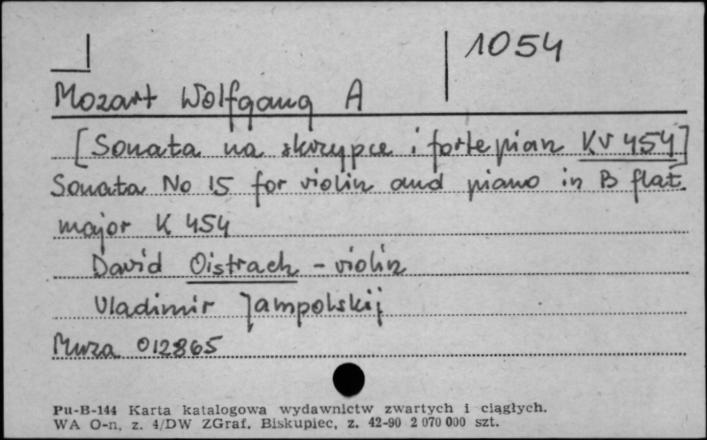 1054
Mozart Wolfgang A
[Sonata na skrzypce i fortepian KV 454]
Sonata No 15 for violin and piano in B flat
major K 454
David Oistrach - violin
Vladimir Jampolskij
Muza 012865
Pu-B-144 Karta katalogowa wydawnictw zwartych i ciągłych.
WA O-n, z. 4/DW ZGraf. Biskupiec, z. 42-90 2 070 000 szt.